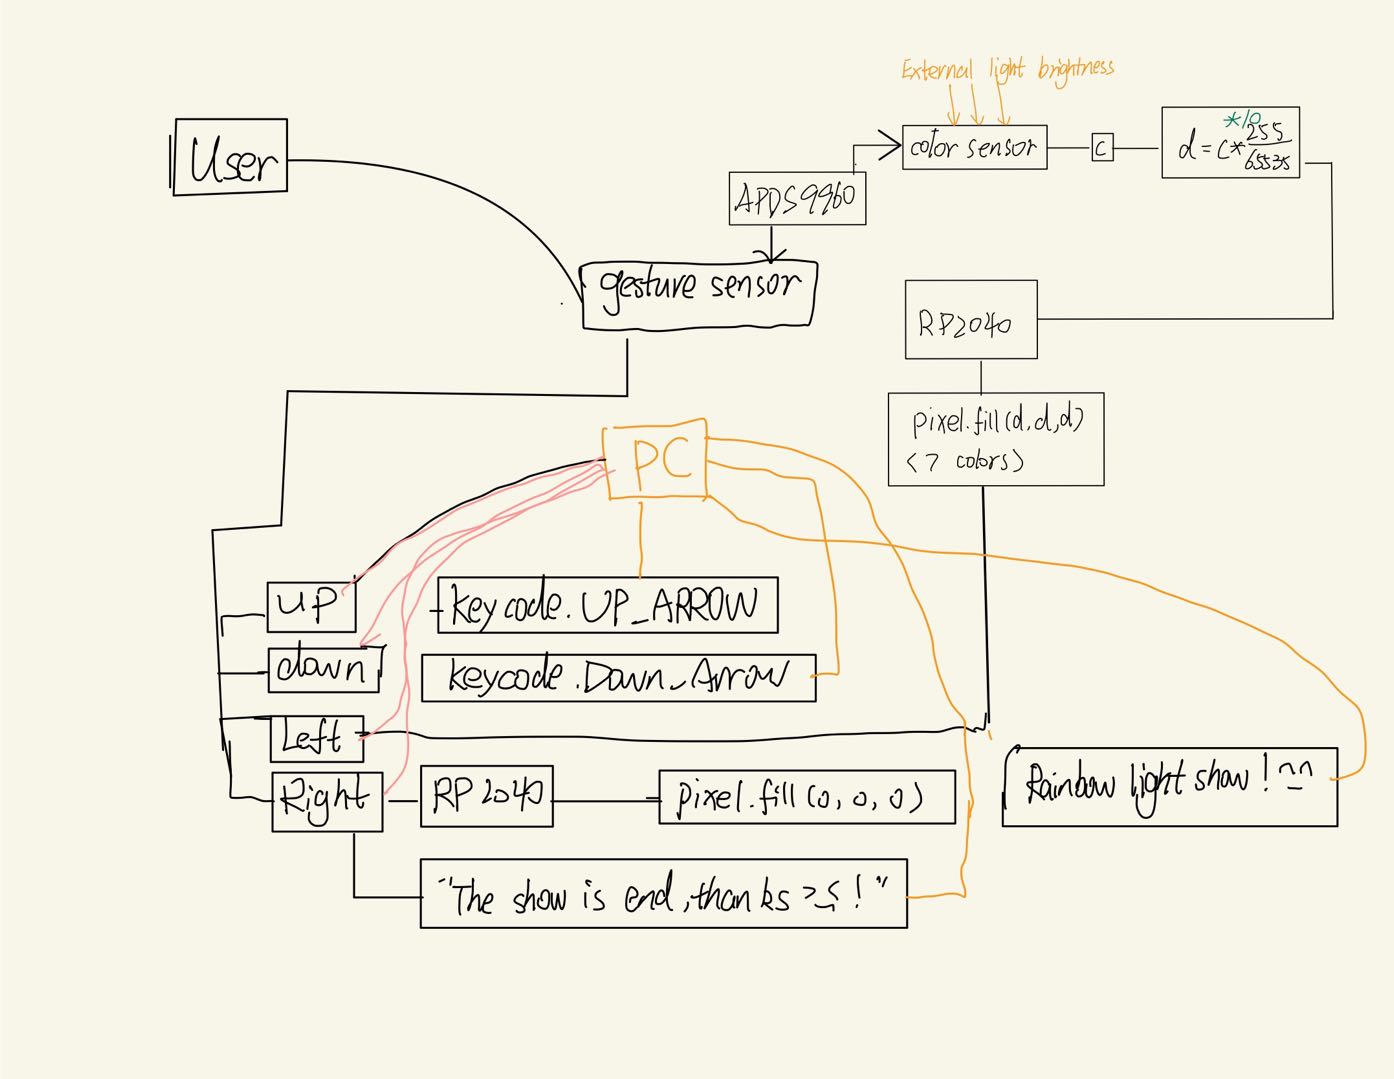 External light brightness
User
color sensor
c
*10
d = c* 255/65535
APDS9960
gesture sensor
RP2040
pixel.fill(d,d,d)
<7 colors>
PC
UP
keycode.UP_ARROW
down
keycode.Down_Arrow
Left
Rainbow light show!
Right
RP2040
pixel.fill(0,0,0)
"The show is end,thanks >_<!"